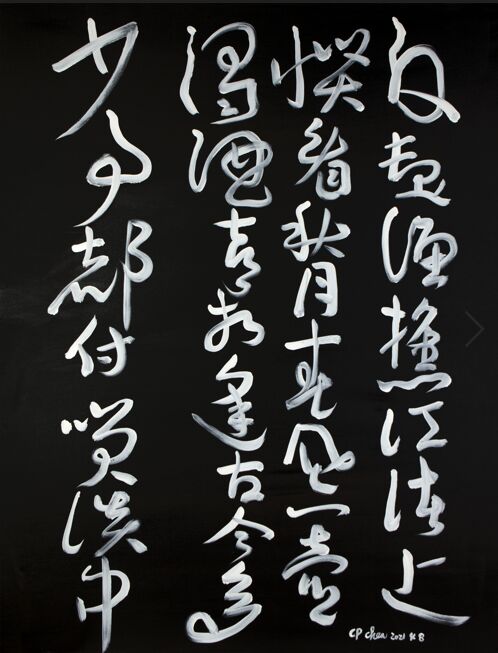 白髮漁樵江渚上
慣看秋月春風一壺
濁酒喜相逢古今多
少事都付笑談中
CP Chen 2021